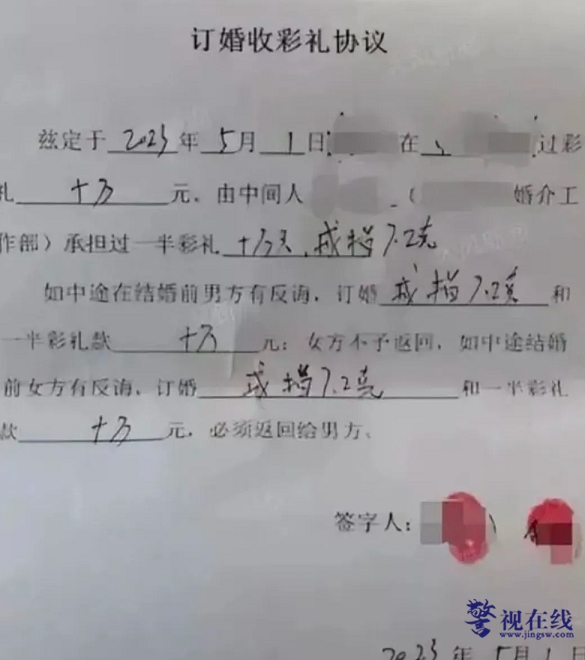 订婚收彩礼协议
兹定于 2023 年 5 月 1 日 在 过彩
礼 十万 元，由中间人 （ 婚介工
作部）承担过一半彩礼 十万元，戒指7.2克
如中途在结婚前男方有反诲，订婚 戒指7.2克 和
一半彩礼款 十万 元；女方不予返回，如中途结婚
前女方有反诲，订婚 戒指7.2克 和一半彩礼
款 十万 元，必须返回给男方。
签字人：
2023 年 5月 1 日
警视在线
www.jingsw.com